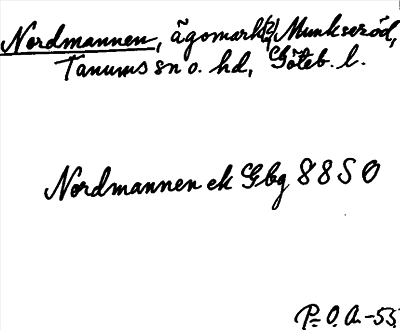 Nordmannen, ägomark, Munkseröd,
Tanums sn o. hd, Göteb. l.
Nordmannen ek Gbg 88 S O
P. O. A. -55